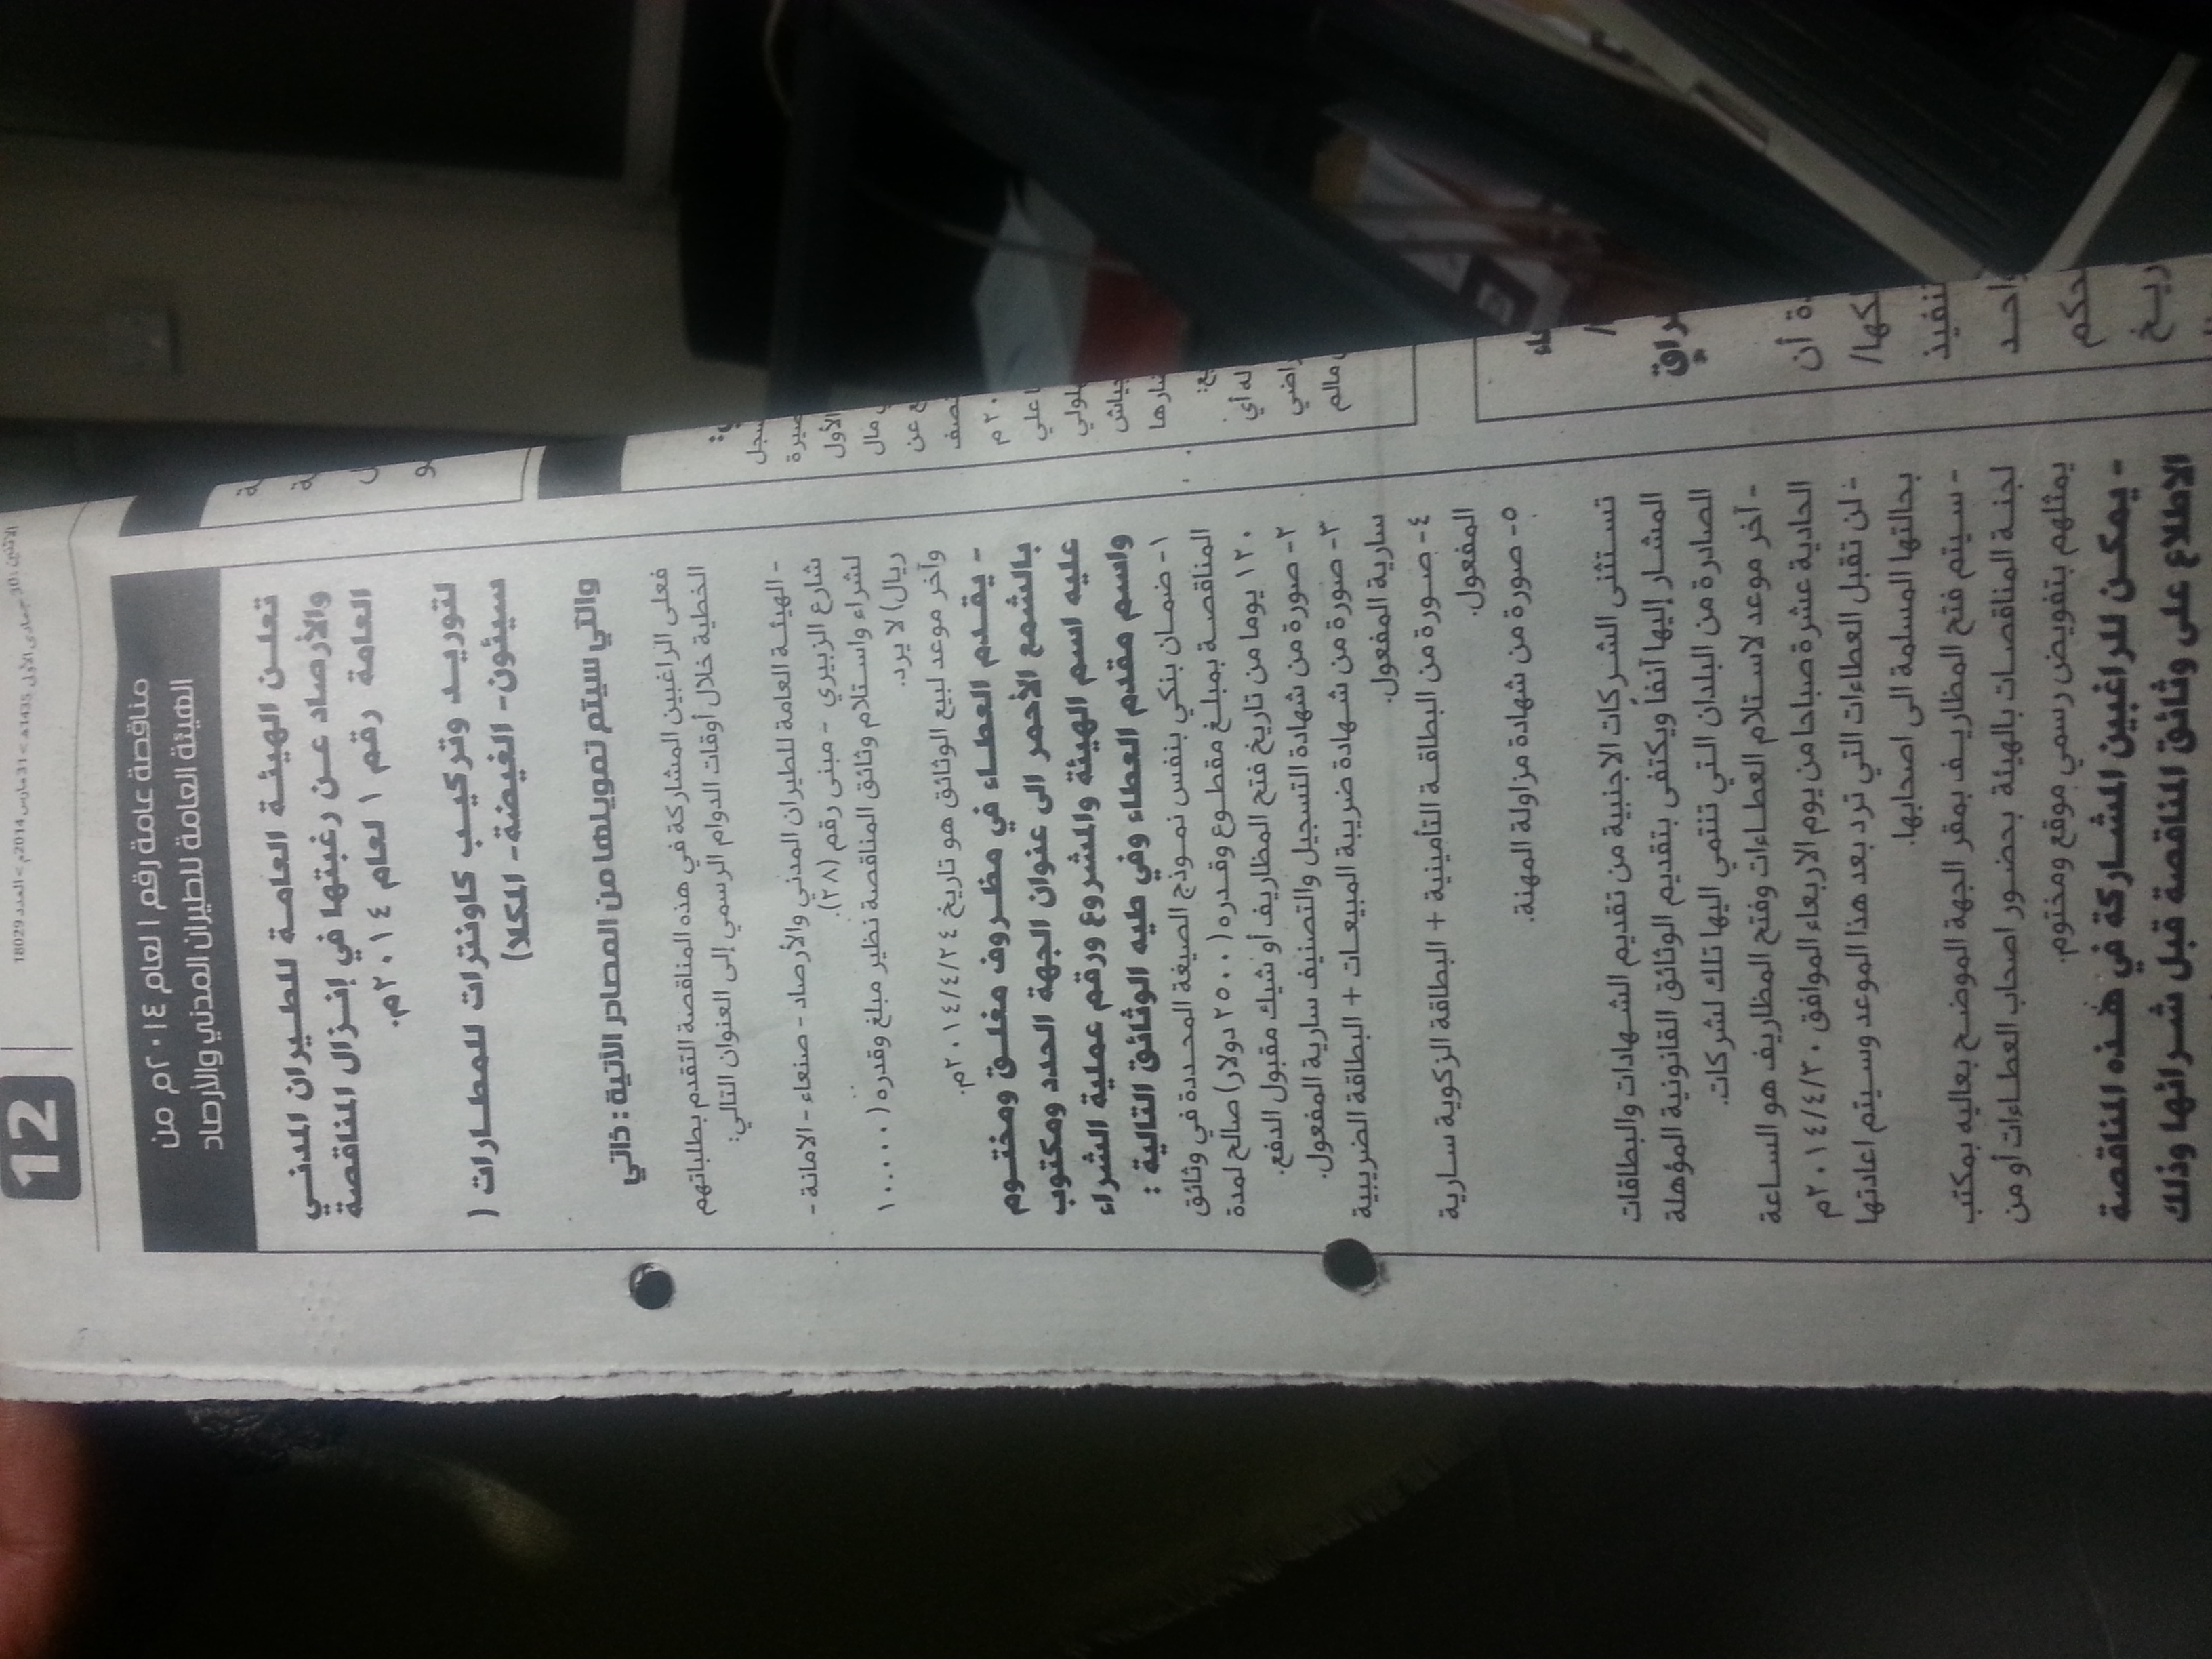 12
الاثنين: 30 جمادى الأول 1435هـ > 31 مارس 2014م > العدد 18029
مناقصة عامة رقم ١ لعام ٢٠١٤م من
الهيئة العامة للطيران المدني والأرصاد
تعلن الهيئة العامة للطيران المدني
والأرصاد عن رغبتها في إنزال المناقصة
العامة رقم ١ لعام ٢٠١٤م.
لتوريد وتركيب كاونترات للمطارات (
سيئون- الغيضة- المكلا)
والتي سيتم تمويلها من المصادر الآتية: ذاتي
فعلى الراغبين المشاركة في هذه المناقصة التقدم بطلباتهم
الخطية خلال أوقات الدوام الرسمي إلى العنوان التالي:
- الهيئة العامة للطيران المدني والأرصاد - صنعاء - الامانة -
شارع الزبيري - مبنى رقم (٢٨).
لشراء واستلام وثائق المناقصة نظير مبلغ وقدره (١٠.٠٠٠
ريال) لا يرد.
وآخر موعد لبيع الوثائق هو تاريخ ٢٠١٤/٤/٢٤م.
- يقدم العطاء في مظروف مغلق ومختوم
بالشمع الأحمر الى عنوان الجهة المحدد ومكتوب
عليه اسم الهيئة والمشروع ورقم عملية الشراء
واسم مقدم العطاء وفي طيه الوثائق التالية :
١- ضمان بنكي بنفس نموذج الصيغة المحددة في وثائق
المناقصة بمبلغ مقطوع وقدره (٢٥٠٠ دولار) صالح لمدة
١٢٠ يوما من تاريخ فتح المظاريف أو شيك مقبول الدفع.
٢- صورة من شهادة التسجيل والتصنيف سارية المفعول.
٣- صورة من شهادة ضريبة المبيعات + البطاقة الضريبية
سارية المفعول.
٤- صورة من البطاقة التأمينية + البطاقة الزكوية سارية
المفعول.
٥- صورة من شهادة مزاولة المهنة.
تستثنى الشركات الاجنبية من تقديم الشهادات والبطاقات
المشار إليها آنفاً ويكتفى بتقديم الوثائق القانونية المؤهلة
الصادرة من البلدان التي تنتمي اليها تلك لشركات.
- آخر موعد لاستلام العطاءات وفتح المظاريف هو الساعة
الحادية عشرة صباحا من يوم الاربعاء الموافق ٢٠١٤/٤/٣٠م
- لن تقبل العطاءات التي ترد بعد هذا الموعد وسيتم اعادتها
بحالتها المسلمة الى اصحابها.
- سيتم فتح المظاريف بمقر الجهة الموضح بعاليه بمكتب
لجنة المناقصات بالهيئة بحضور اصحاب العطاءات أو من
يمثلهم بتفويض رسمي موقع ومختوم.
- يمكن للراغبين المشاركة في هذه المناقصة
الاطلاع على وثائق المناقصة قبل شرائها وذلك